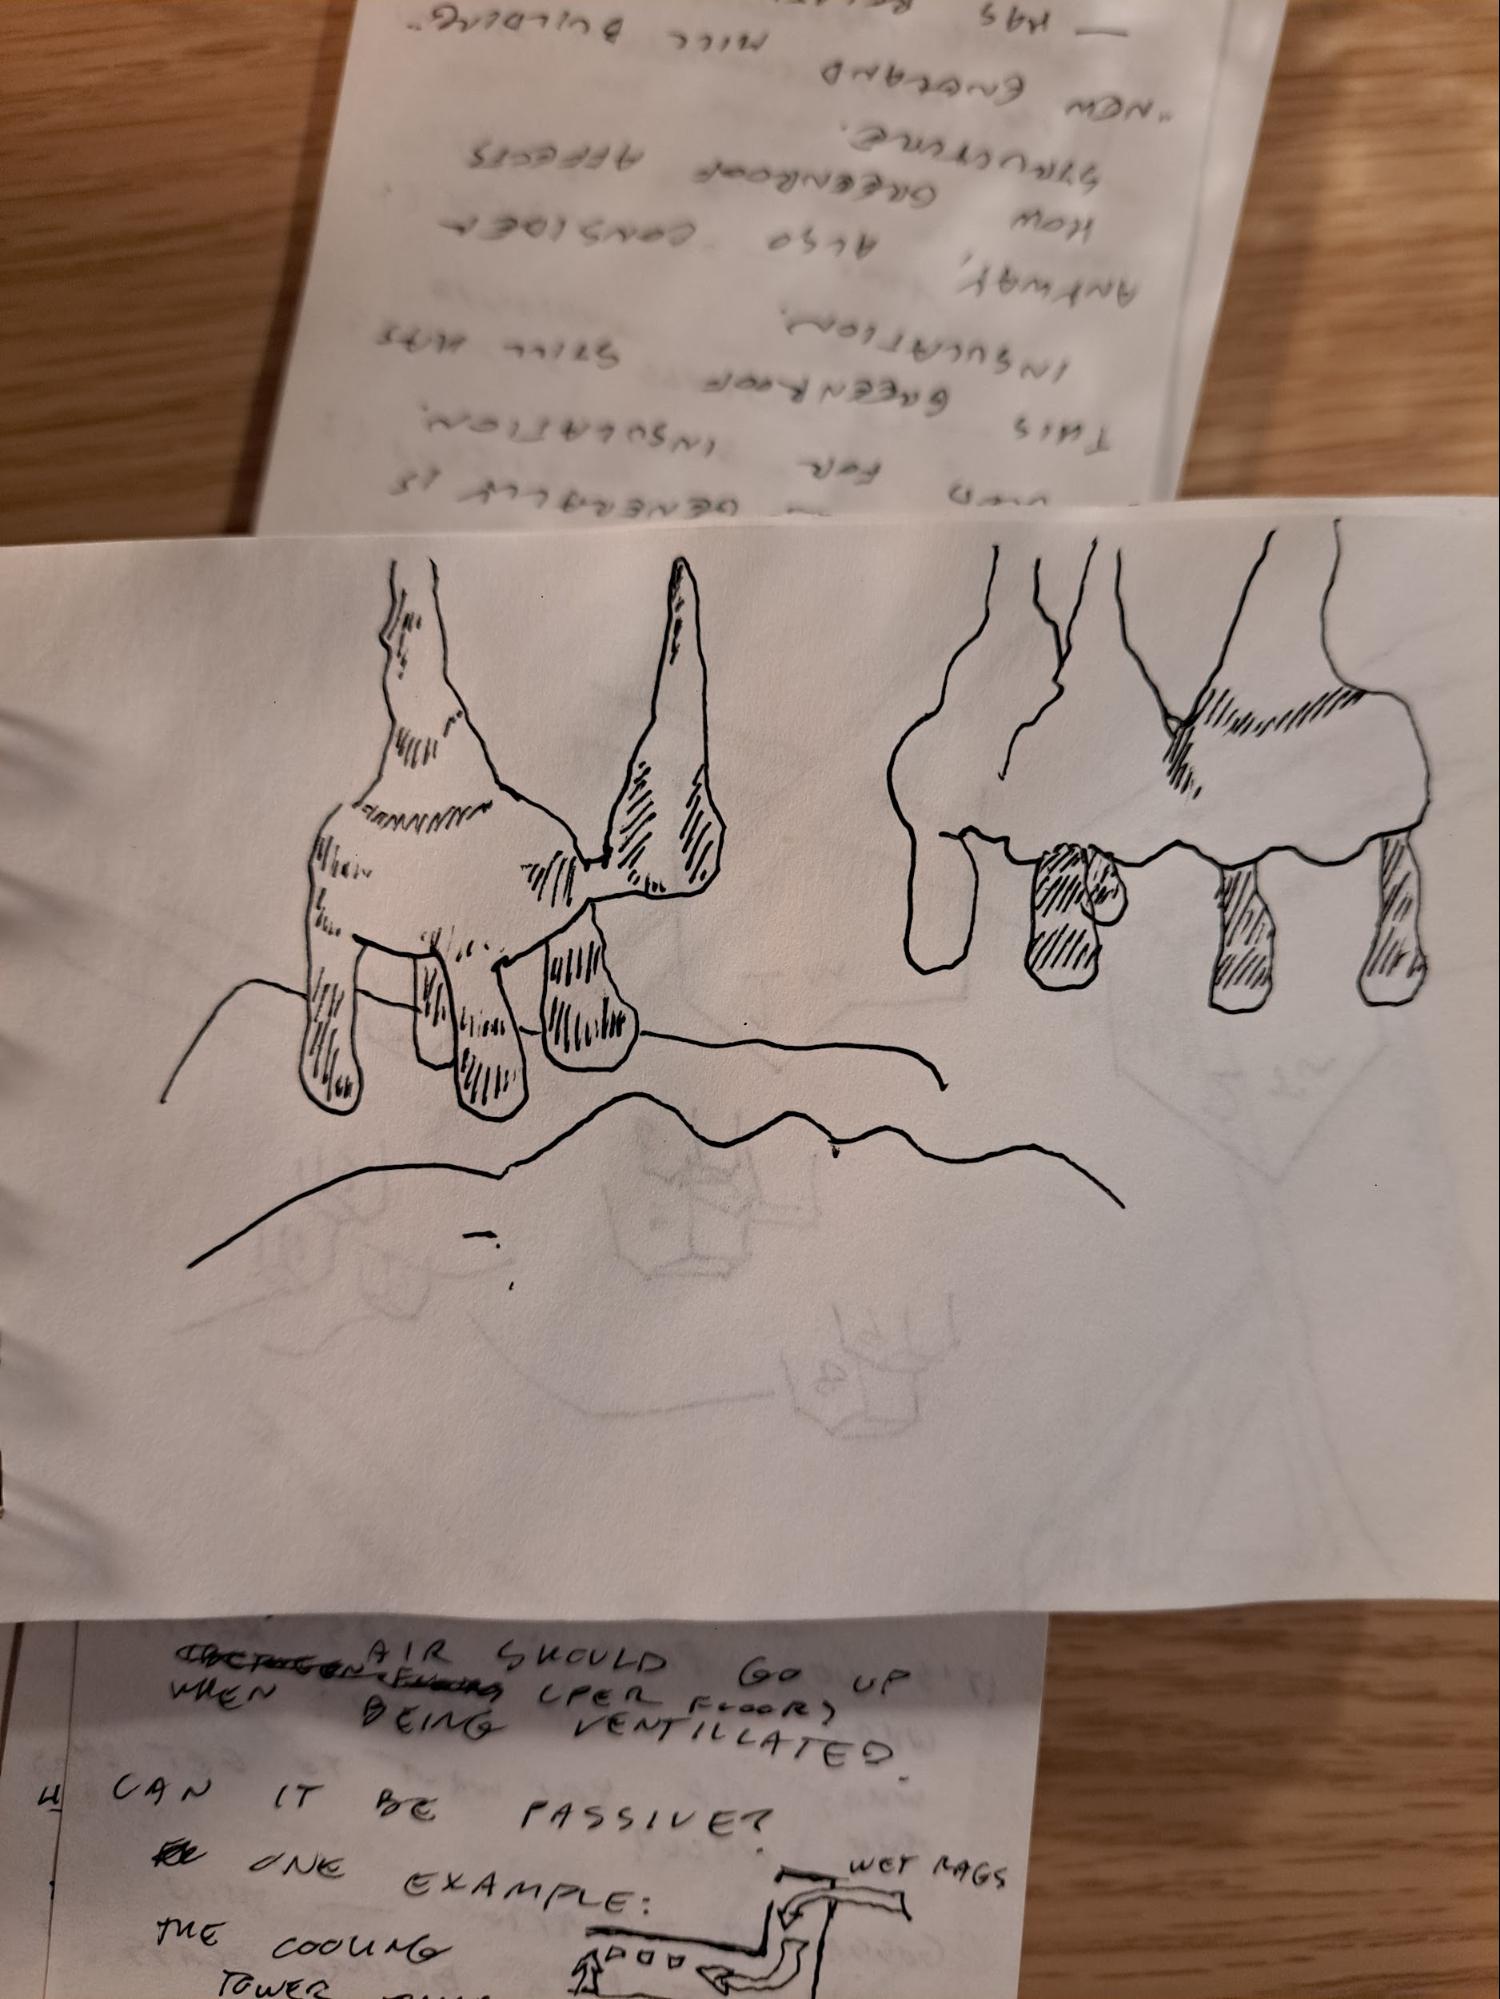 GENERALLY IS
USED FOR INSULATION.
THIS GREENROOF STILL HAS
INSULATION.
ANYWAY, ALSO CONSIDER
HOW GREENROOF AFFECTS
STRUCTURE.
"NEW ENGLAND MILL BUILDING"
— HAS
AIR SHOULD GO UP
WHEN UPER FLOORS
BEING VENTILLATED.
4 CAN IT BE PASSIVE?
ONE EXAMPLE:
WET RAGS
THE COOLING
TOWER